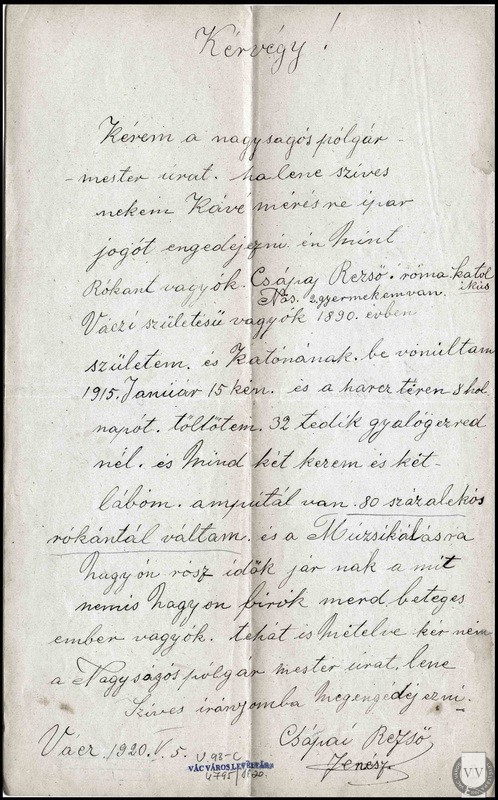 Kérvégy!
Kérem a nagyságós pólgár-
-mester úrat. ha lene szíves
nekem Káve mérésre ípar
jogót engedéjezni én Mint
Rókant vagyók. Csápaj Rezső. róma. katól
ikús
Nős. 2 gyermekem van.
Váczi születésű vagyók 1890. évben
születem. és Katónának. be vónúltam
1915. Január 15 kém. és a harcz téren 8 hol
napót. töltötem. 32 tedík gyalógezred
nél. és Mind két kezem és két-
lábóm. ampútál van. 80 százalekós
rókántál váltam. és a Múzsikálásra
nagyón rósz idők jár nak a mit
nemis nagyon bírók merd beteges
ember vagyók. tehát is Métélve kér ném
a Nagyságós pólgár mester úrat, lene
Szíves irányomba Megengédéjezni.
Vácz. 1920. V. 5.
Csápai Rezső
Zenész.
V. 93-C
VÁC VÁROS LEVÉLTÁRA
4795/1920.
VV